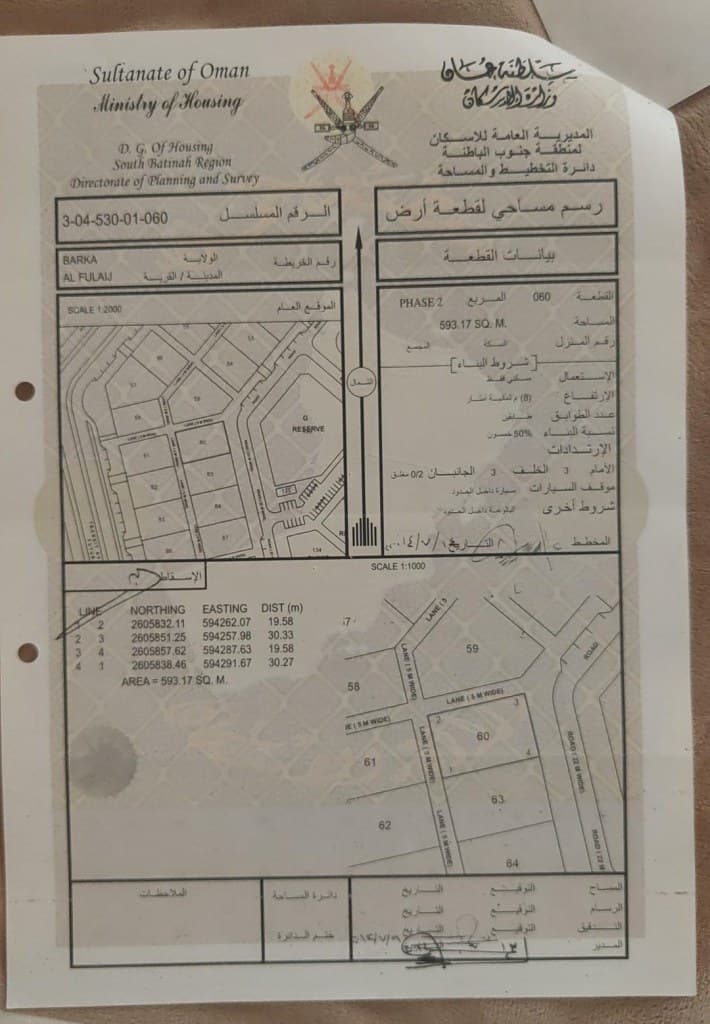 Sultanate of Oman
Ministry of Housing
D. G. Of Housing
South Batinah Region
Directorate of Planning and Survey
سلطنة عمان
وزارة الإسكان
المديرية العامة للاسكان
لمنطقة جنوب الباطنة
دائرة التخطيط والمساحة
3-04-530-01-060 الرقم المسلسل
رسم مساحي لقطعة أرض
BARKA الولاية رقم الخريطة
AL FULAIJ المدينة / القرية
بيانات القطعة
SCALE 1:2000 الموقع العام
القطعة 060 المربع PHASE 2
المساحة 593.17 SQ. M.
رقم المنزل السكة المجمع
شروط البناء
الإستعمال سكني فقط
الإرتفاع (8)
عدد الطوابق طابقين
نسبة البناء 50% خمسون
الإرتدادات
الأمام 3 الخلف 3 الجانبان 0/2 مغلق
موقف السيارات سيارة داخل الحدود
شروط أخرى البالوعة داخل الحدود
المخطط التاريخ
الشمال
G
RESERVE
57
58
61
62
63
134
SCALE 1:1000
الإسقاط
LINE NORTHING EASTING DIST (m)
1 2 2605832.11 594262.07 19.58
2 3 2605851.25 594257.98 30.33
3 4 2605857.62 594287.63 19.58
4 1 2605838.46 594291.67 30.27
AREA = 593.17 SQ. M.
LANE ( 5
LANE ( 5 M WIDE)
59
ROAD
58
LANE ( 5 M WIDE)
3
2
60
4
1
NE ( 5 M WIDE)
61
LANE ( 5 M WIDE)
ROAD ( 22 M WIDE)
63
62
LANE ( 5 M WIDE)
ROAD ( 22 M
64
الملاحظات
دائرة المساحة
ختم الدائرة
المساح التوقيع التاريخ
الرسام التوقيع التاريخ
التدقيق التوقيع التاريخ
المدير